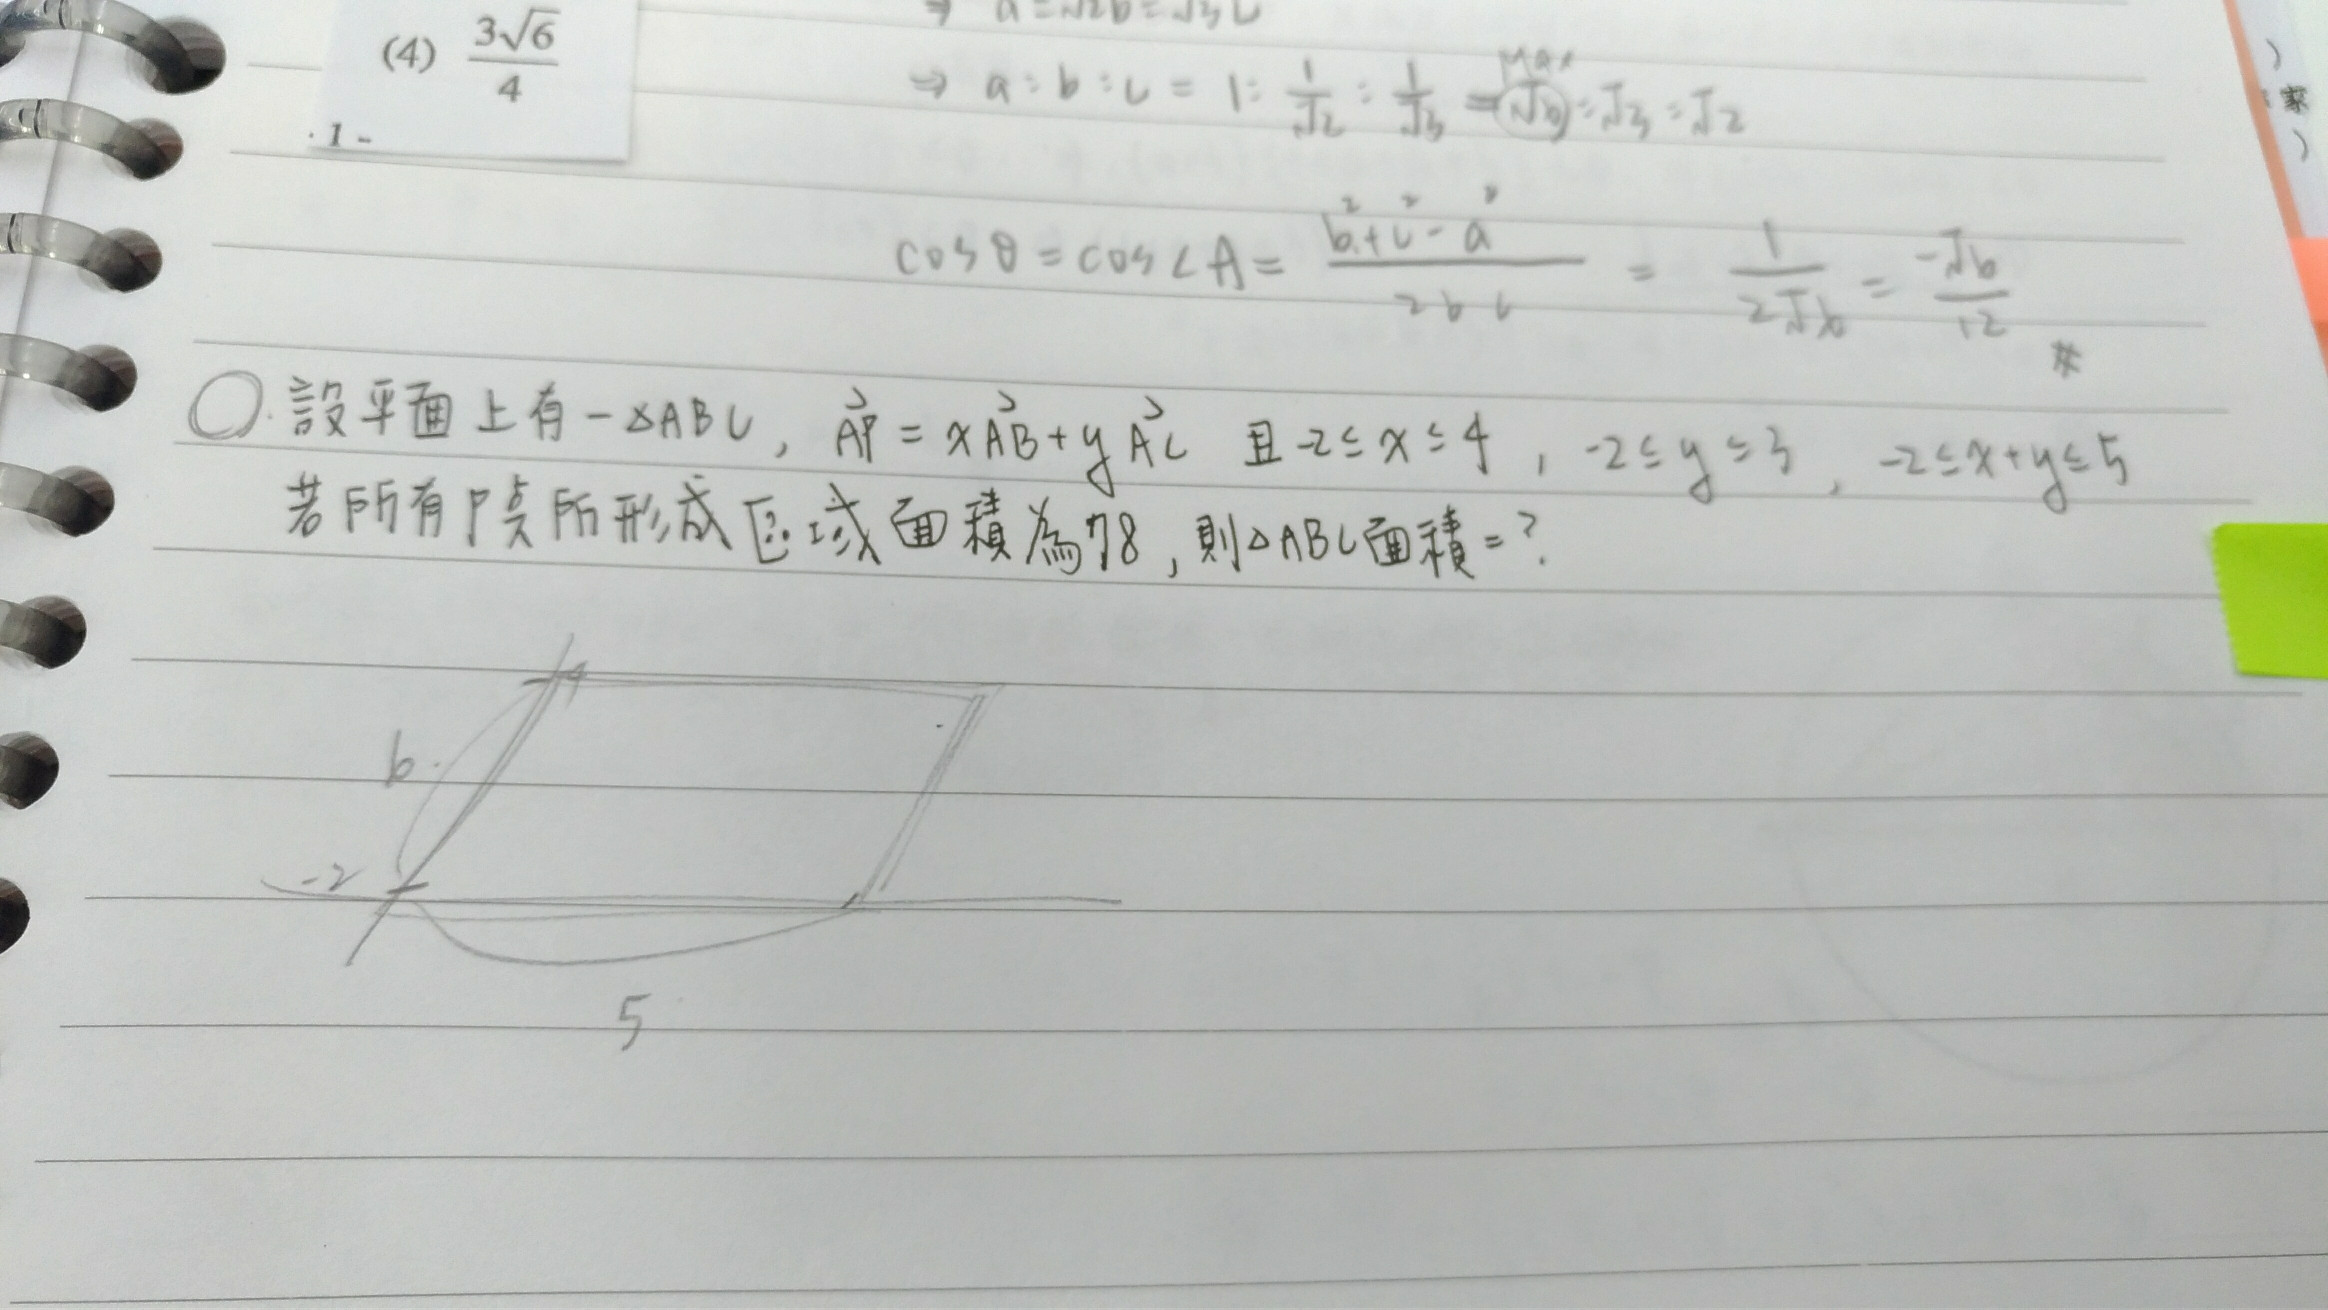 (4) 3√6/4
· 1 -
⇒ a = √2b = √3c
⇒ a : b : c = 1 : 1/√2 : 1/√3 = √6 : √3 : √2
Max
家
cosθ = cos∠A = (b²+c²-a²)/2bc = 1/2√6 = -√6/12
#
○. 設平面上有一△ABC, AP⃗ = xAB⃗ + yAC⃗ 且 -2≤x≤4, -2≤y≤3, -2≤x+y≤5
若所有P點所形成區域面積為78, 則△ABC面積=?
6
-2
5